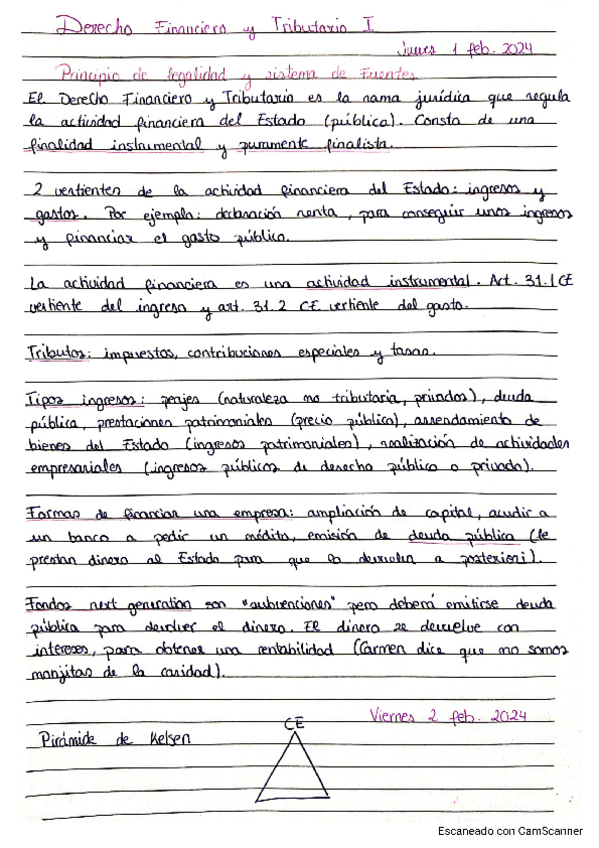 Derecho Financiero y Tributario I
Jueves 1 feb. 2024
Principio de legalidad y sistema de Fuentes
El Derecho Financiero y Tributario es la rama jurídica que regula
la actividad financiera del Estado (pública). Consta de una
finalidad instrumental y puramente finalista.
2 vertientes de la actividad financiera del Estado: ingresos y
gastos. Por ejemplo: declaración renta, para conseguir unos ingresos
y financiar el gasto público.
La actividad financiera es una actividad instrumental. Art. 31.1 CE
vertiente del ingreso y art. 31.2 CE vertiente del gasto.
Tributos: impuestos, contribuciones especiales y tasas.
Tipos ingresos: peajes (naturaleza no tributaria, privados), deuda
pública, prestaciones patrimoniales (precio público), arrendamiento de
bienes del Estado (ingresos patrimoniales), realización de actividades
empresariales (ingresos públicos de derecho público o privado).
Formas de financiar una empresa: ampliación de capital, acudir a
un banco a pedir un crédito, emisión de deuda pública (le
prestan dinero al Estado para que lo devuelva a posteriori).
Fondos next generation son "subvenciones" pero deberá emitirse deuda
pública para devolver el dinero. El dinero se devuelve con
intereses, para obtener una rentabilidad (Carmen dice que no somos
monjitas de la caridad).
Viernes 2 feb. 2024
CE
Pirámide de Kelsen
Escaneado con CamScanner